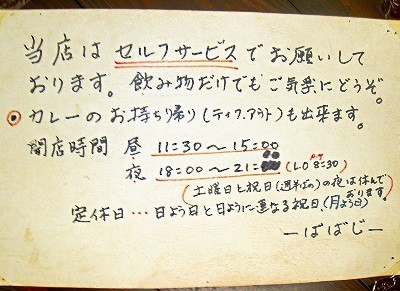 当店は セルフサービスでお願いして
おります。飲み物だけでもご気楽にどうぞ。
カレーのお持ち帰り(テイクアウト)も出来ます。
開店時間 昼 11:30〜15:00
夜 18:00〜21: (L・O 8:30)
(土曜日と祝日(週半ばの)の夜は休んで
おります。)
定休日…日よう日と日ように連なる祝日(月よう日)
ーばばじー